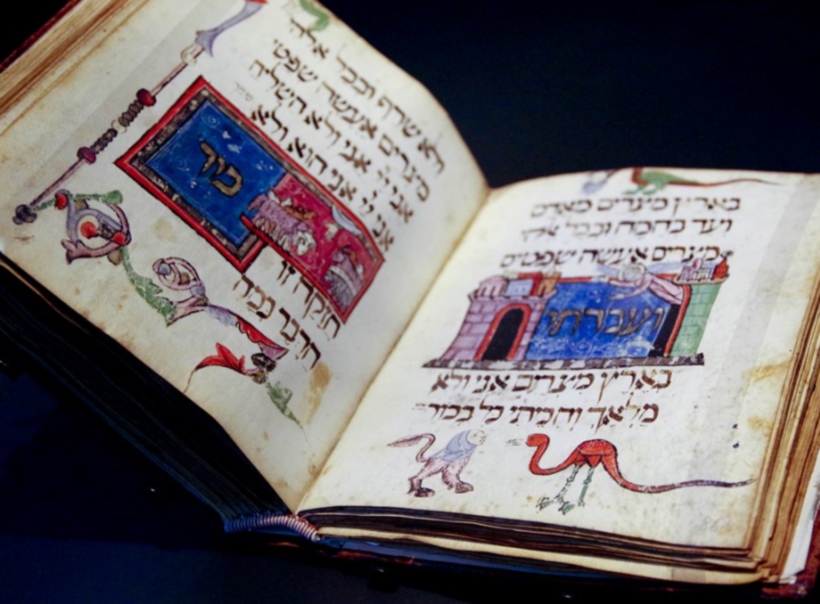 בארץ מצרים מאדם
ועד בהמה ובכל אלהי
מצרים אעשה שפטים
ועברתי
בארץ מצרים אני ולא
מלאך והכיתי כל בכור
ולא שרף ובכל אלהי
מצרים אעשה שפטי'
אני יי' אני ולא השליח
אני יי אני הוא ולא
חזקה זו
הדבר כמה